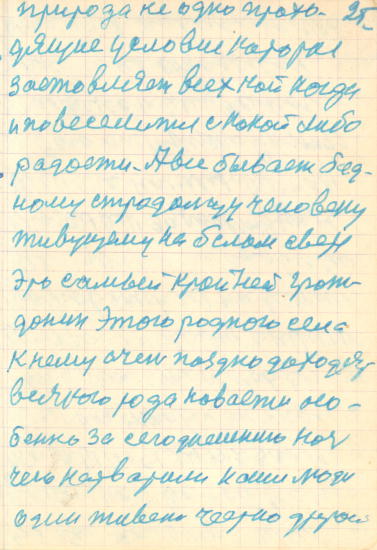 природа не одно прохо- 25
дящие условие которы
заставляет всех ной когда
и повеселится с какой либо
радости. А все бывает бед-
ному страдальцу человеку
живущему на белом свеи
Это самый крайней граж-
данин Этого родного села
к нему очен поздно доходят
всякого рода новаести осо-
бенно за сегоднешнию ноч
чего натварили наши люди
один живень черно